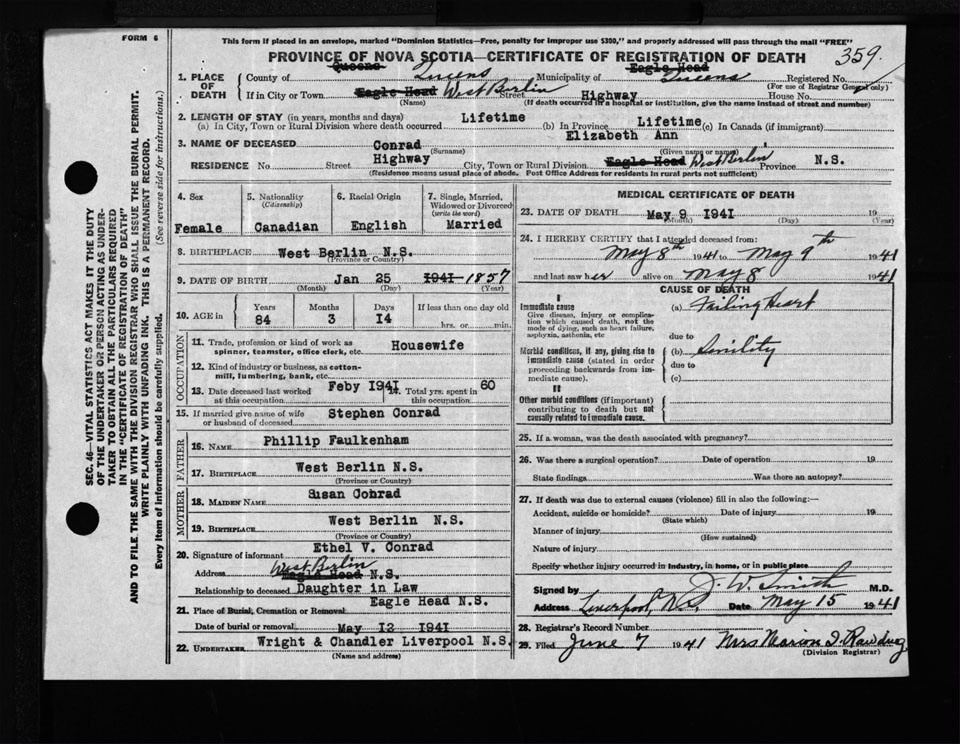 FORM 6
This form if placed in an envelope, marked "Dominion Statistics—Free, penalty for improper use $300," and properly addressed will pass through the mail "FREE"
PROVINCE OF NOVA SCOTIA—CERTIFICATE OF REGISTRATION OF DEATH 359.
1. PLACE OF DEATH
County of Queens Queens Municipality of Eagle Head Queens Registered No.
(For use of Registrar General only)
If in City or Town Eagle Head West Berlin Street Highway House No.
(Name) (If death occurred in a hospital or institution, give the name instead of street and number)
2. LENGTH OF STAY (in years, months and days)
(a) In City, Town or Rural Division where death occurred Lifetime (b) In Province Lifetime (c) In Canada (if immigrant)
3. NAME OF DECEASED Conrad Elizabeth Ann
(Surname) (Given name or names)
RESIDENCE No. Street Highway City, Town or Rural Division Eagle Head West Berlin Province N.S.
(Residence means usual place of abode. Post Office Address for residents in rural parts not sufficient)
4. Sex
Female
5. Nationality
(Citizenship)
Canadian
6. Racial Origin
English
7. Single, Married, Widowed or Divorced
(write the word)
Married
8. BIRTHPLACE West Berlin N.S.
(Province or Country)
9. DATE OF BIRTH Jan 25 1941 1857
(Month) (Day) (Year)
10. AGE in
Years 84
Months 3
Days 14
If less than one day old
hrs. or min.
OCCUPATION
11. Trade, profession or kind of work as spinner, teamster, office clerk, etc. Housewife
12. Kind of industry or business, as cotton-mill, lumbering, bank, etc.
13. Date deceased last worked at this occupation Feby 1941
14. Total yrs. spent in this occupation 60
15. If married give name of wife or husband of deceased Stephen Conrad
FATHER
16. NAME Phillip Faulkenham
17. BIRTHPLACE West Berlin N.S.
(Province or Country)
MOTHER
18. MAIDEN NAME Susan Cobrad
19. BIRTHPLACE West Berlin N.S.
(Province or Country)
20. Signature of informant Ethel V. Conrad
Address West Berlin Eagle Head N.S.
Relationship to deceased Daughter in Law
21. Place of Burial, Cremation or Removal Eagle Head N.S.
Date of burial or removal May 12 1941
22. UNDERTAKER Wright & Chandler Liverpool N.S.
(Name and address)
MEDICAL CERTIFICATE OF DEATH
23. DATE OF DEATH May 9 1941 19
(Month) (Day)
24. I HEREBY CERTIFY that I attended deceased from:
May 8th 1941 to May 9th 1941
and last saw her alive on May 8 1941
CAUSE OF DEATH
I
Immediate cause
Give disease, injury or complication which caused death, not the mode of dying, such as heart failure, asphyxia, asthenia, etc
(a) Failing Heart
due to
Morbid conditions, if any, giving rise to immediate cause (stated in order proceeding backwards from immediate cause).
(b) Senility
due to
(c)
II
Other morbid conditions (if important) contributing to death but not causally related to immediate cause.
25. If a woman, was the death associated with pregnancy?
26. Was there a surgical operation? Date of operation 19
State findings Was there an autopsy?
27. If death was due to external causes (violence) fill in also the following:—
Accident, suicide or homicide? Date of injury 19
(State which)
Manner of injury
(How sustained)
Nature of injury
Specify whether injury occurred in industry, in home, or in public place
Signed by J. W. Smith M.D.
Address Liverpool, N.S. Date May 15 1941
28. Registrar's Record Number
29. Filed June 7 1941 Mrs Marion I.
(Division Registrar)
SEC. 46—VITAL STATISTICS ACT MAKES IT THE DUTY
OF THE UNDERTAKER OR PERSON ACTING AS UNDER-
TAKER TO OBTAIN ALL THE PARTICULARS REQUIRED
IN THE "CERTIFICATE OF REGISTRATION OF DEATH"
AND TO FILE THE SAME WITH THE DIVISION REGISTRAR WHO SHALL ISSUE THE BURIAL PERMIT.
WRITE PLAINLY WITH UNFADING INK. THIS IS A PERMANENT RECORD.
Every item of information should be carefully supplied. (See reverse side for instructions.)